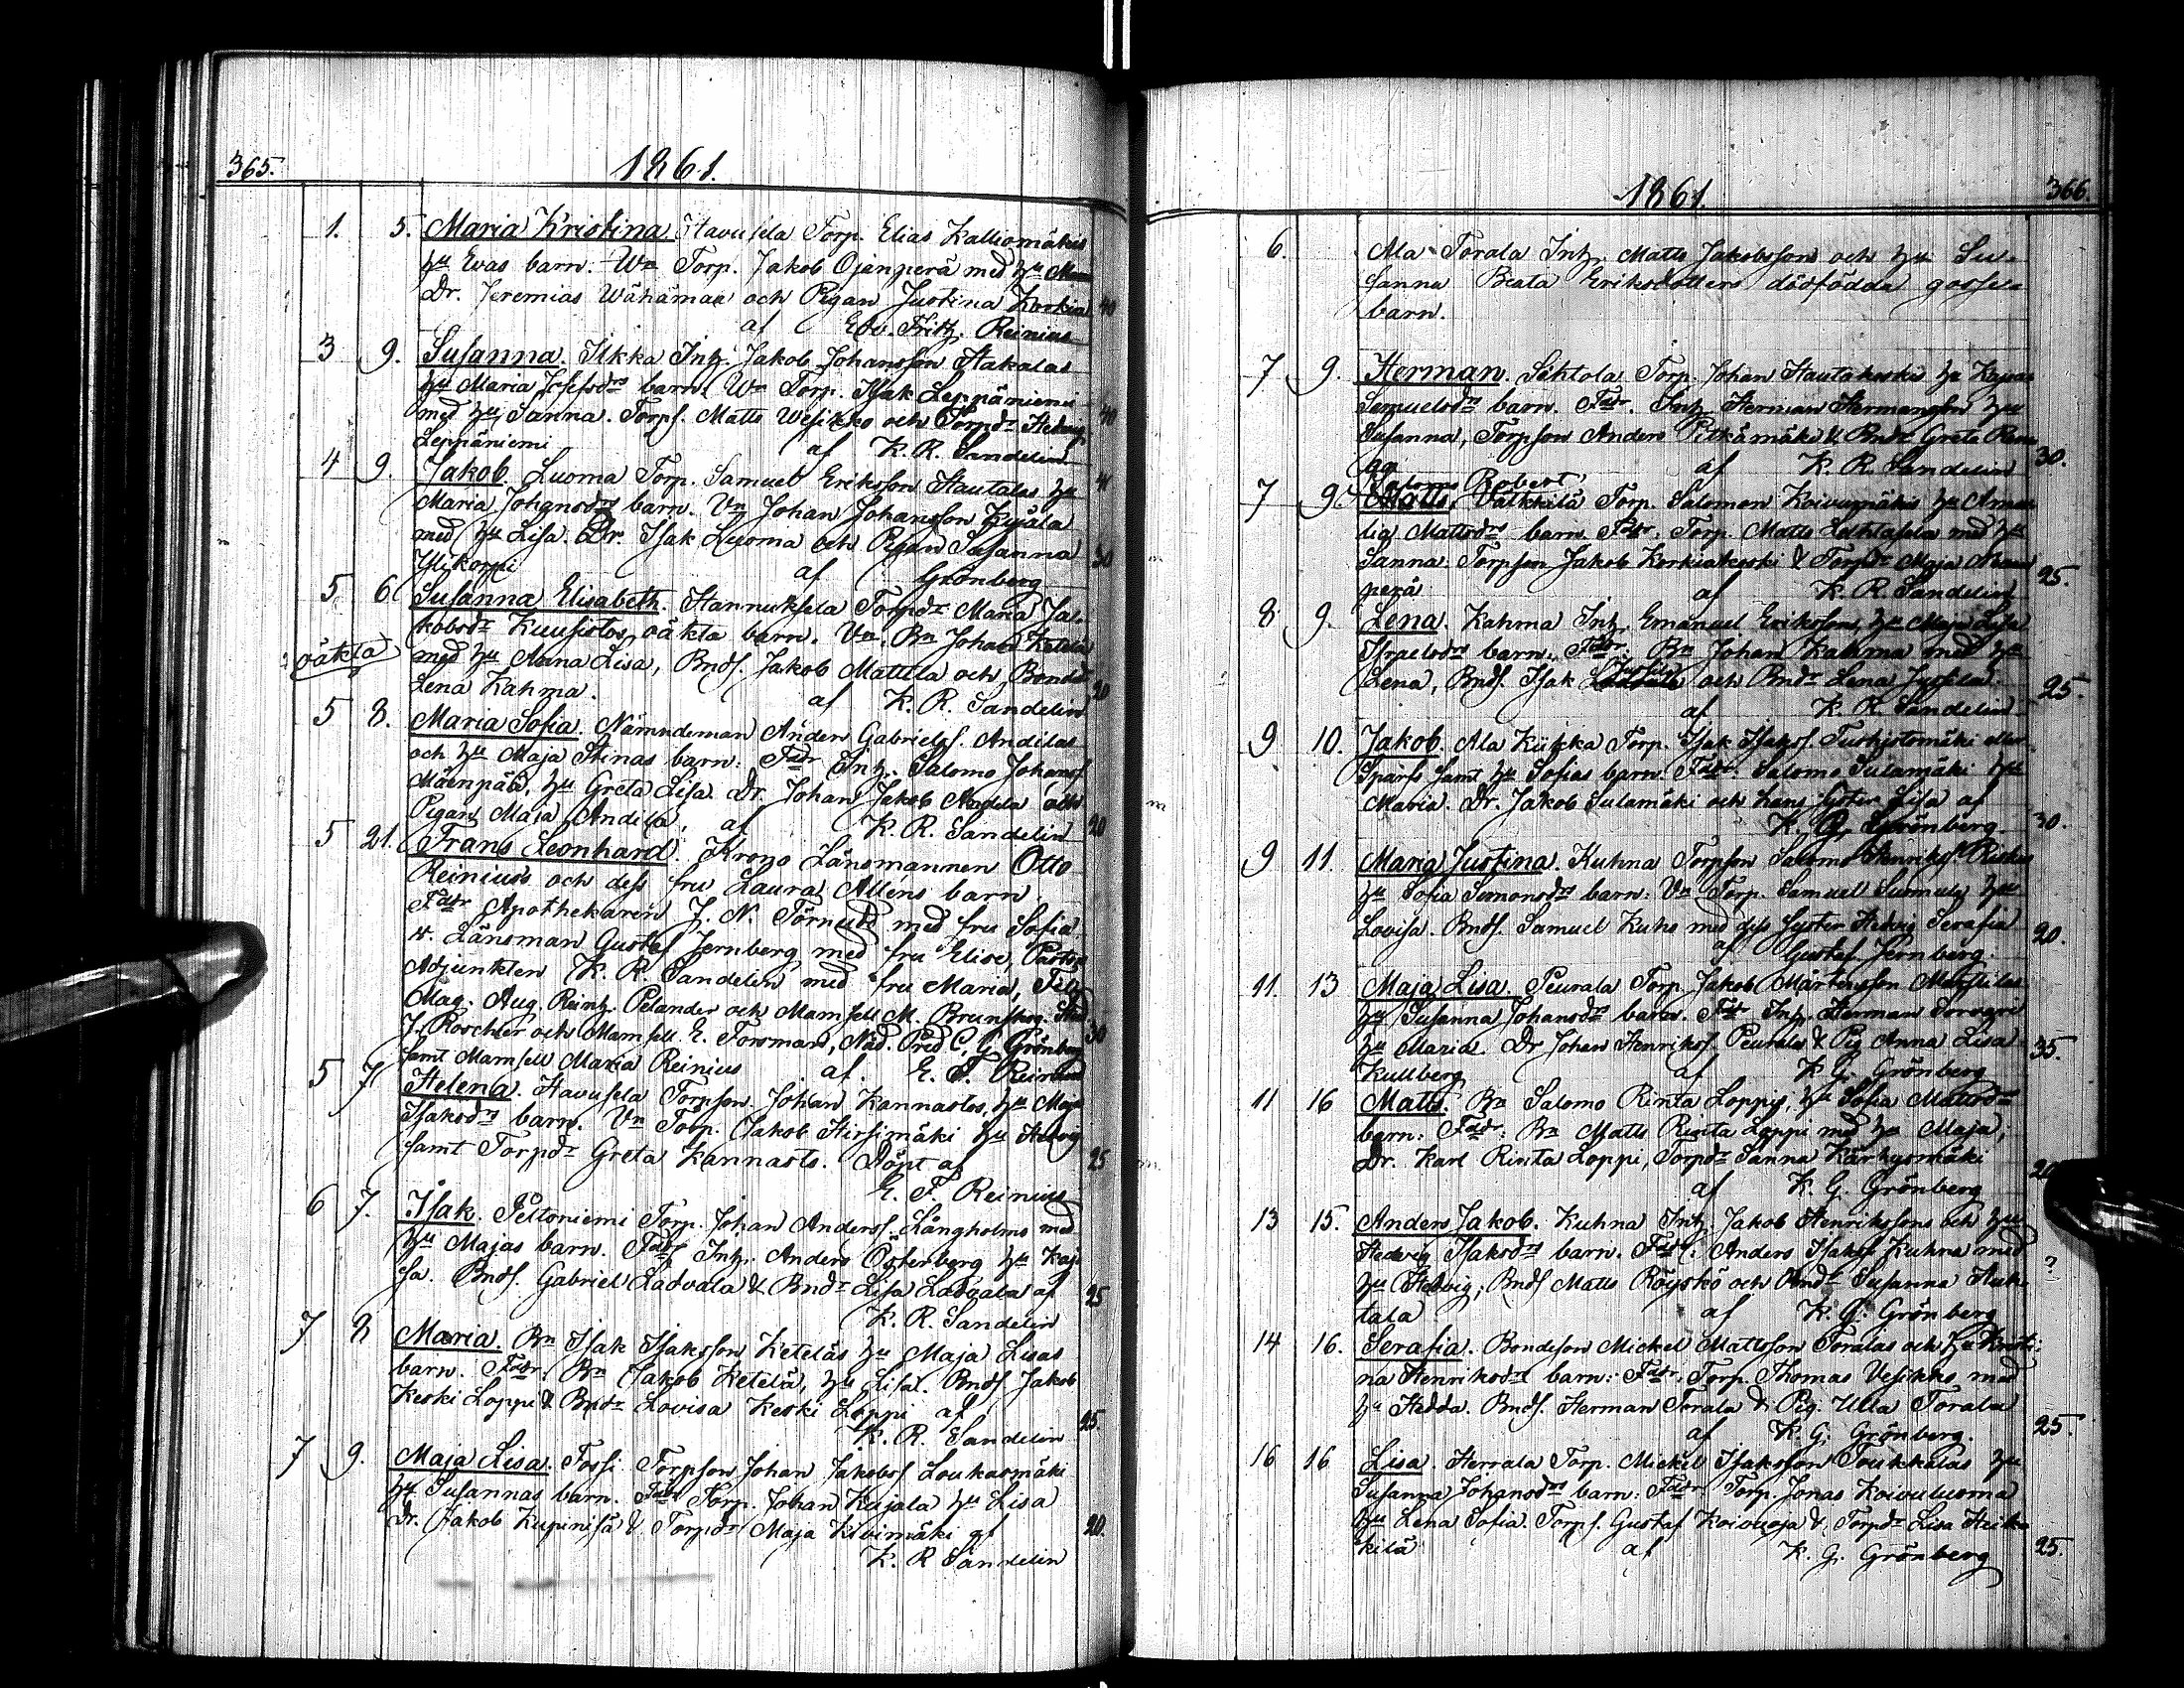 365.
1861.
1. 5. Maria Kristina. Havusela Torp. Elias Kalliomäkis
hu Evas barn: Wn Torp. Jakob Ojanperä med hu
Dr. Jeremias Wähämaa och Pigan Justina Korkia 40
af Edv. Fritz. Reinius
3 9. Susanna. Ilkka Inh. Jakob Johansson Hakalas
hu Maria Josefsdrs barn. Wn Torp. Isak Leppäniemi
med hu Sanna. Torps. Matts Wesikko och Torpdr Hedvig 40
Leppäniemi af K. R. Sandelin
4 9. Jakob. Luoma Torp. Samuel Eriksson Hautalas hu 41
Maria Johansdrs barn. Vn Johan Johansson Kujala
med hu Lisa. Dr. Isak Luoma och Pigan Susanna 30
Ylikorpi af Grönberg
5 6 Susanna Elisabeth. Hannuksela Torpdr Maria Ja-
kobsdr Kuusistos oäkta barn. Vn. Bn Johan Ketela
oäkta med hu Anna Lisa, Bnds. Jakob Mattila och Bondd 20
Lena Kahma. af K. R. Sandelin
5 8. Maria Sofia. Nämndeman Anders Gabrielss. Andilas
och hu Maja Stinas barn: Fadr Inh. Salomo Johanss.
Mäenpää, hu Greta Lisa. Dr. Johan Jakob Andela och
Pigan Maja Andila, af K. R. Sandelin 20
5 21. Frans Leonhard. Krono Länsmannen Otto
Reinius's och dess fru Laura Alléns barn
Fadr Apothekaren J. N. Törnudd med fru Sofia
v. Länsman Gustaf Jernberg med fru Elise, Pastors
Adjunkten K. R. Sandelin med fru Maria, Fil.
Mag. Aug. Reinh. Pelander och Mamsell M. Brunskog. Stud.
J. Roschier och Mamsell E. Forsman, Nåd. Pred C. G. Grönberg 30
samt Mamsell Maria Reinius af. E. F. Reinius
5 7 Helena. Havusela Torpson. Johan Kannastos, hu Maja
Isaksdrs barn. Vn Torp. Jakob Hirsimäki hu Hedvig
samt Torpdr Greta Kannasto. Döpt af 25
E. F. Reinius
6 7. Isak. Peltoniemi Torp. Johan Anderss. Långholms med
hu Majas barn. Fadr Inh. Anders Österberg hu Kaj-
sa. Bnds. Gabriel Ladvala & Bndr Lisa Ladvala af 25
K. R. Sandelin
7 8 Maria. Bn Isak Isaksson Ketelas hu Maja Lisas
barn. Fadr. Bn Jakob Ketela, hu Lisa. Bnds Jakob
Keski Loppi & Bndr Lovisa Keski Loppi af 25.
K. R. Sandelin
7 9. Maja Lisa. Tossi Torpson Johan Jakobss Loukasmäki
hu Susannas barn. Fadr Torp. Johan Kujala hu Lisa
Dr. Jakob Kupinisä & Torpdr Maja Kivimäki af 20.
K. R Sandelin
1861.
366.
6. Ala Torala Inh. Matts Jakobssons och hu Su-
sanna Beata Eriksdotters dödfödda gosse-
barn.
7 9. Herman. Sihtola Torp. Johan Hautakoski hu Kajsa
Samuelsdrs barn. Fadr. Inh Herman Hermansson hu
Susanna, Torpson Anders Pitkämäki & Bndr Greta
af K. R. Sandelin 30.
Salomo Robert,
7 9. Matts, Välkkilä Torp. Salomon Koivumäkis hu Ama-
lia Mattsdrs barn. Fadr. Torp. Matts Lahtasela med hu
Sanna. Torpson Jakob Korkiakoski & Torpdr Maja
perä af K. R. Sandelin 25.
8 9. Lena. Kahma Inh. Emanuel Eriksson, hu Maja Lisa
Israelsdrs barn. Fadr. Bn Johan Kahma med hu
Lena, Bnds. Isak och Bndr Lena Jussila
af K. R. Sandelin 25.
9 10. Jakob. Ala Kiikka Torp. Isak Isakss. Tuohistomäki eller
Sparfs samt hu Sofias barn. Fadr. Salomo Sulamäki hu
Maria. Dr. Jakob Sulamäki och hans syster Lisa af
K. G. Grönberg 30.
9 11 Maria Justina. Kuhna Torpson Salomo Henrikss Riskus
hu Sofia Simonsdrs barn: Vn Torp. Samuel Surmula hu
Lovisa. Bnds. Samuel Kuho med dess syster Hedvig Serafia 20.
af Gustaf Jernberg.
11. 13 Maja Lisa. Peurala Torp Jakob Mårtensson Mattilas
hu Susanna Johansdrs barn. Fadr Inh. Herman Sorvari
hu Maria. Dr Johan Henrikss. Peurala & Pig Anna Lisa 35.
Kullberg af K. G. Grönberg
11 16 Matts. Bn Salomo Rinta Loppis, hu Sofia Mattsdr
barn: Fadr: Bn Matts Rinta Loppi med hu Maja;
Dr. Karl Rinta Loppi, Torpdr Sanna Kärkysmäki 20
af K. G. Grönberg
13 15. Anders Jakob. Kuhna Inh. Jakob Henrikssons och hu
Hedvig Isaksdrs barn. Fadr. Anders Isakss Kuhna med
hu Hedvig; Bnds Matts Röyskö och Bndr Susanna Hau- ?
tala af K. G. Grönberg
14 16. Serafia. Bondeson Mickel Mattsson Toralas och hu Kristi-
na Henriksdrs barn: Fadr. Torp. Thomas Vesikko med
hu Hedda. Bnds. Herman Torala & Pig. Ulla Torala
af K. G. Grönberg. 25.
16 16 Lisa. Herrala Torp. Mickel Isaksson Toukkalas hu
Susanna Johansdrs barn: Fadr Torp. Jonas Koivuluoma
hu Lena Sofia. Torps. Gustaf Koivuoja & Torpdr Lisa Heik-
kilä af K. G. Grönberg 25.